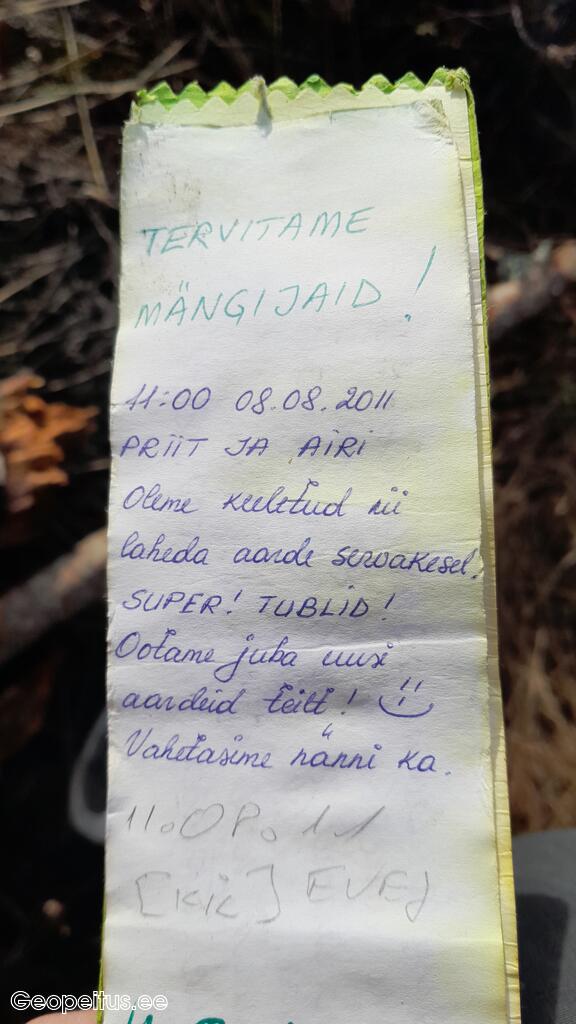 TERVITAME
MÄNGIJAID!
11:00 08.08.2011
PRIIT JA AIRI
Oleme keeletud nii
laheda aarde servakesel.
SUPER! TUBLID!
Ootame juba uusi
aardeid teilt!
Vahetasime nänni ka.
[KIK] EVEJ
Geopeitus.ee